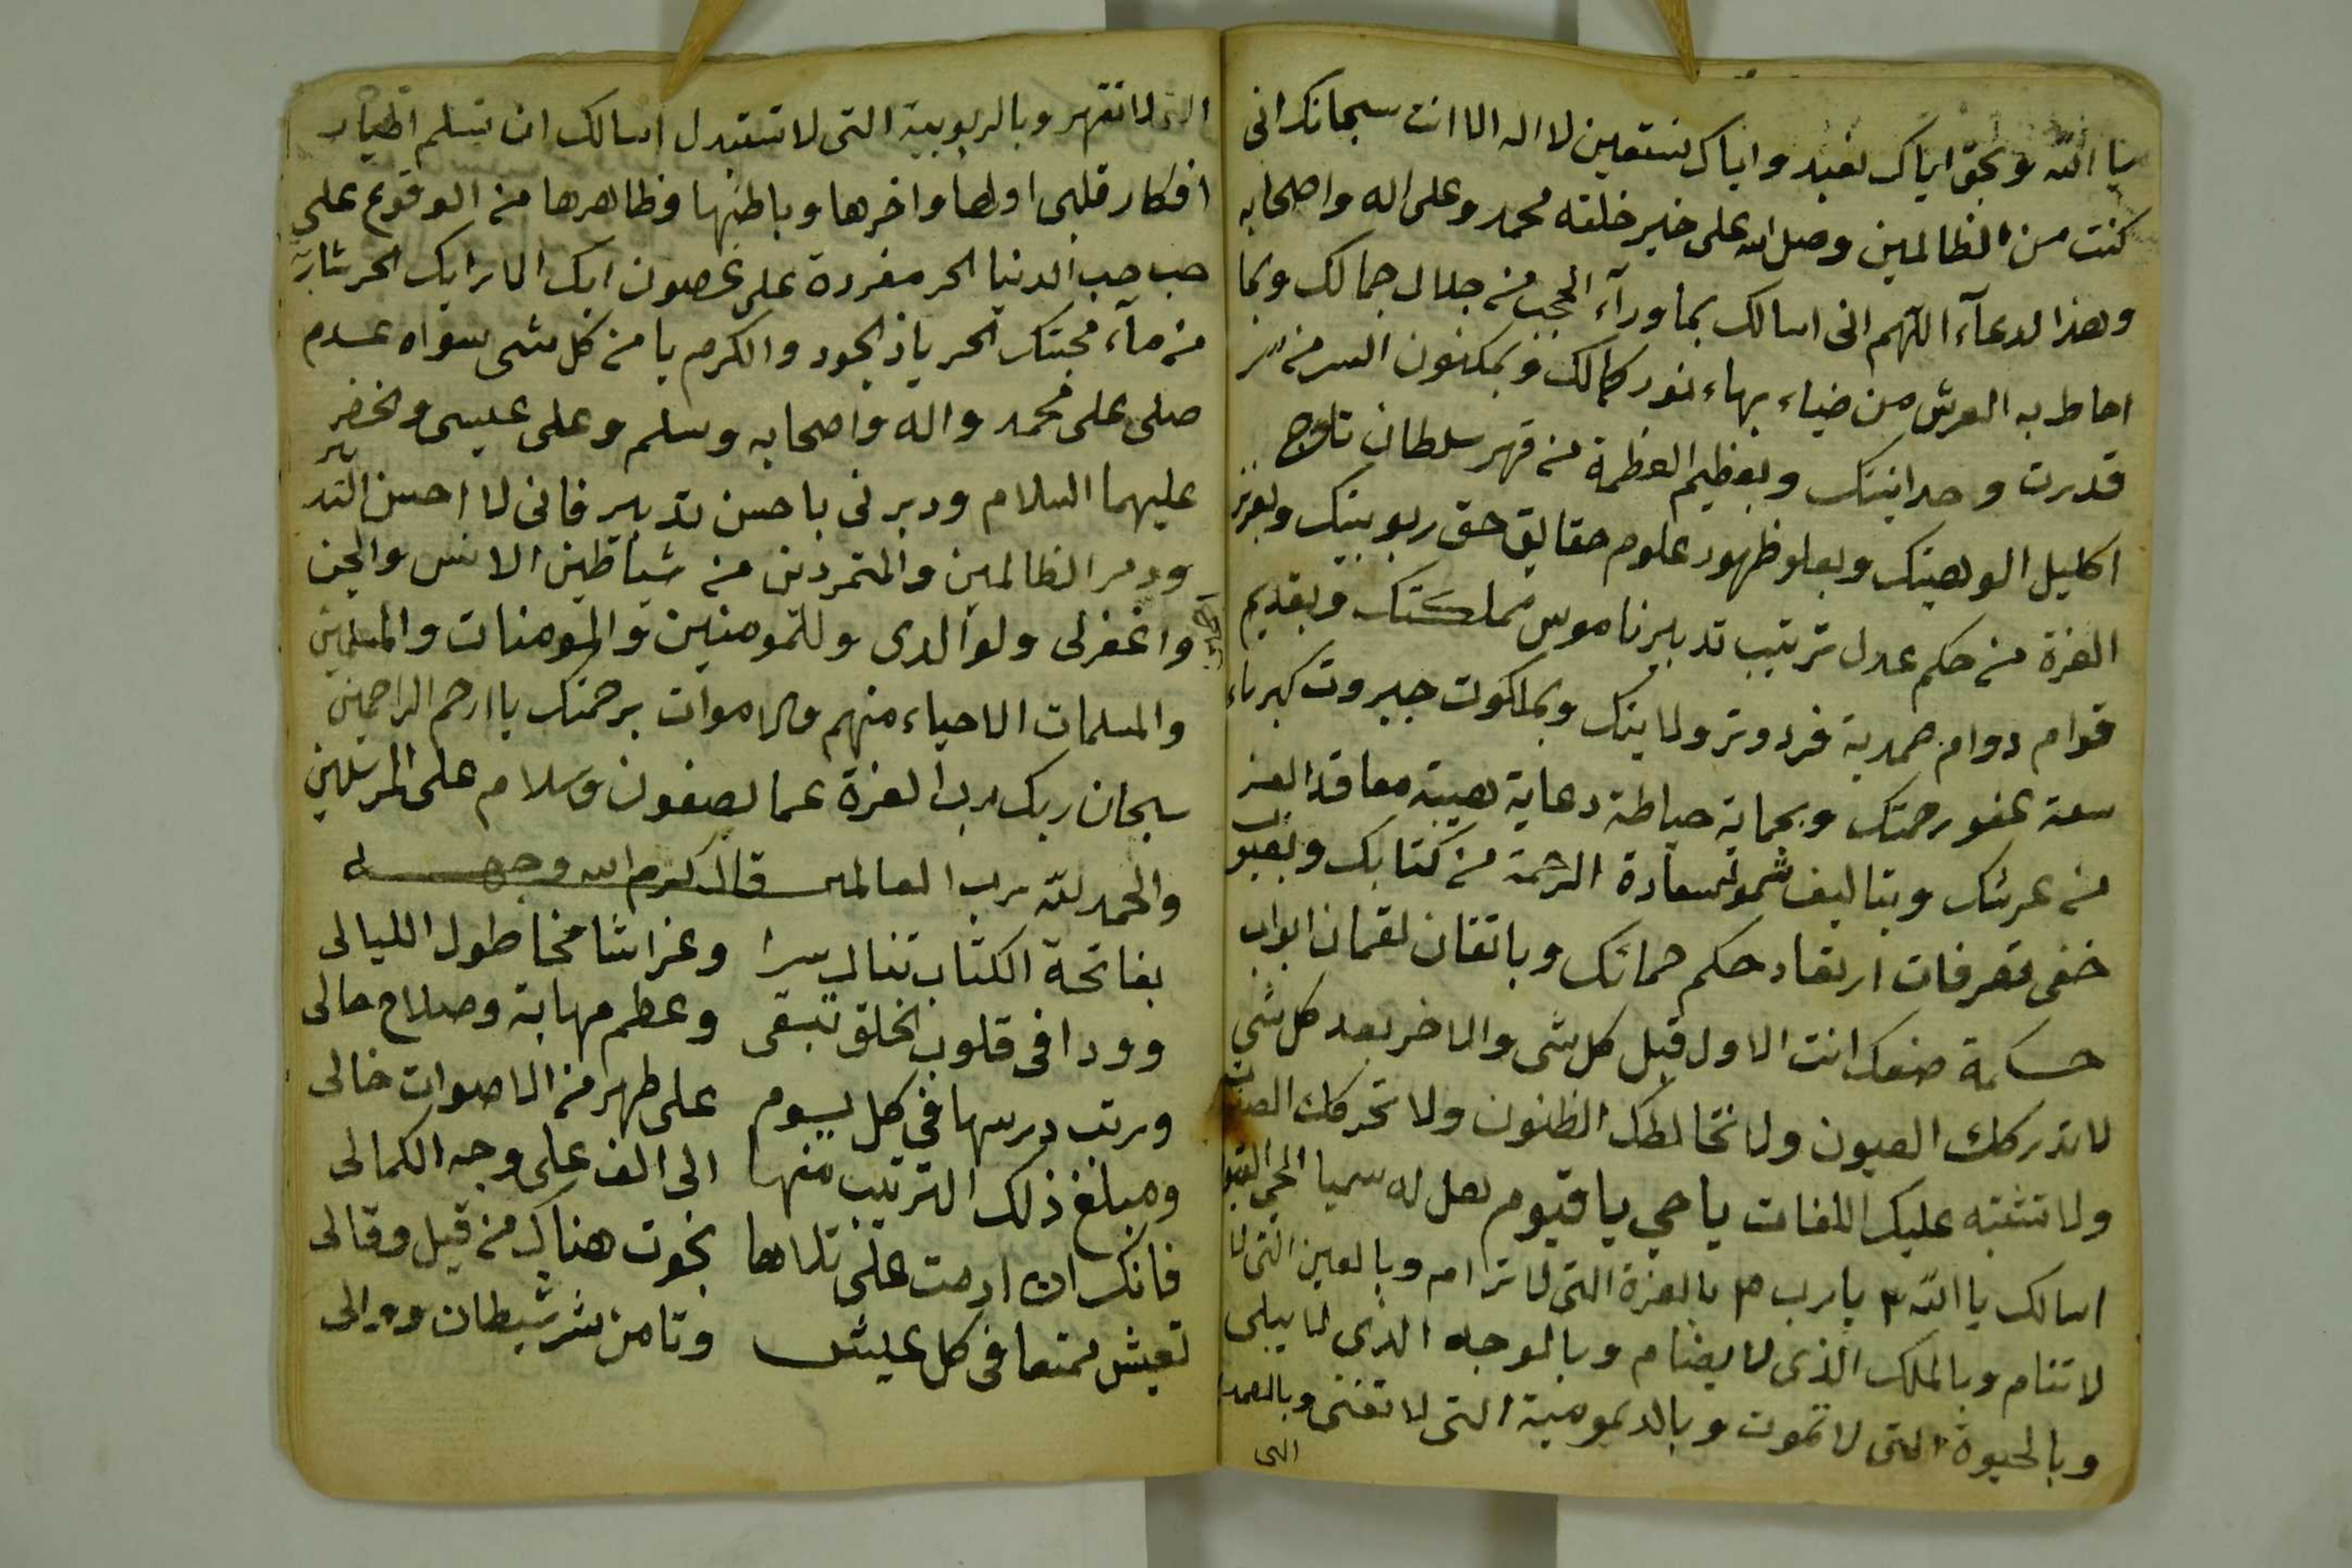 يا الله وبحق اياك نعبد واياك نستعين لا اله الا انت سبحانك انى
كنت من الظالمين وصل الله على خير خلقه محمد وعلى اله واصحابه
وهذا الدعآء اللهم انى اسالك بما ورآء الحجب من جلال جمالك وبما
احاط به العرش من ضياء بهاء نور كمالك وبمكنون السر من سر
قدرت وحدانيتك وبعظيم العظمة من قهر سلطان تاج
اكليل الوهيتك وبعلو ظهور علوم حقايق حق ربوبيتك وبعز
العزة من حكم عدل ترتيب تدبير ناموس مملكتك وبقديم
قوام دوام صمدية فرد وتر ولايتك وبملكوت جبروت كبرياء
سعة عفو رحمتك وبحماية حياطة دعاية هيبة معاقد العز
من عرشك وبتاليف شموس سعادة الرحمة من كتابك وبغيو
خفى تصرفات ارتقاء حكم حماتك وباتقان لقمان ابواب
حكمة صنعك انت الاول قبل كل شى والاخر بعد كل شي
لا تدركك العيون ولا تخالطك الظنون ولا تحركك
ولا تشتبه عليك اللغات يا حي يا قيوم هل له سميا الحي القيو
اسالك يا الله ٣ يا رب ٣ بالعزة التى لا ترام وبالعين التى لا
لا تنام وبالملك الذى لا يضام وبالوجه الذى لا يبلى
وبالحيوة التى لا تموت وبالديمومية التى لا تفنى وبالصمد
التى
التى لا تقهر وبالربوبية التى لا تستبدل اسالك ان تسلم اطيار
افكار قلبى اولها واخرها وباطنها وظاهرها من الوقوع على
حب حب الدنيا الحر مغردة على غصون ايك الارايك الحر شاربة
من مآء محبتك الحر ياذ الجود والكرم يا من كل شى سواه عدم
صلى على محمد واله واصحابه وسلم وعلى عيسى والخضر
عليهما السلام ودبرنى باحسن تدبير فانى لا احسن التدبير
ودمر الظالمين والمتمردين من شياطين الانس والجن
واغفرلى ولوالدى وللمومنين والمومنات والمسلمين
والمسلمات الاحياء منهم والاموات برحمتك يا ارحم الراحمين
سبحان ربك رب العزة عما يصفون وسلام على المرسلين
والحمد لله رب العالمين قال كرم الله وجهه
بفاتحة الكتاب تنال سرا وعزا شامخا طول الليالى
وودا فى قلوب الخلق تبقى وعظم مهابة وصلاح حالى
ورتب درسها فى كل يوم على طهر من الاصوات خالى
ومبلغ ذلك الترتيب منها الى الف على وجه الكمالى
فانك ان ادمت على تلاها نجوت هناك من قيل وقالى
تعيش ممتعا فى كل عيش وتامن شر شيطان ووالى